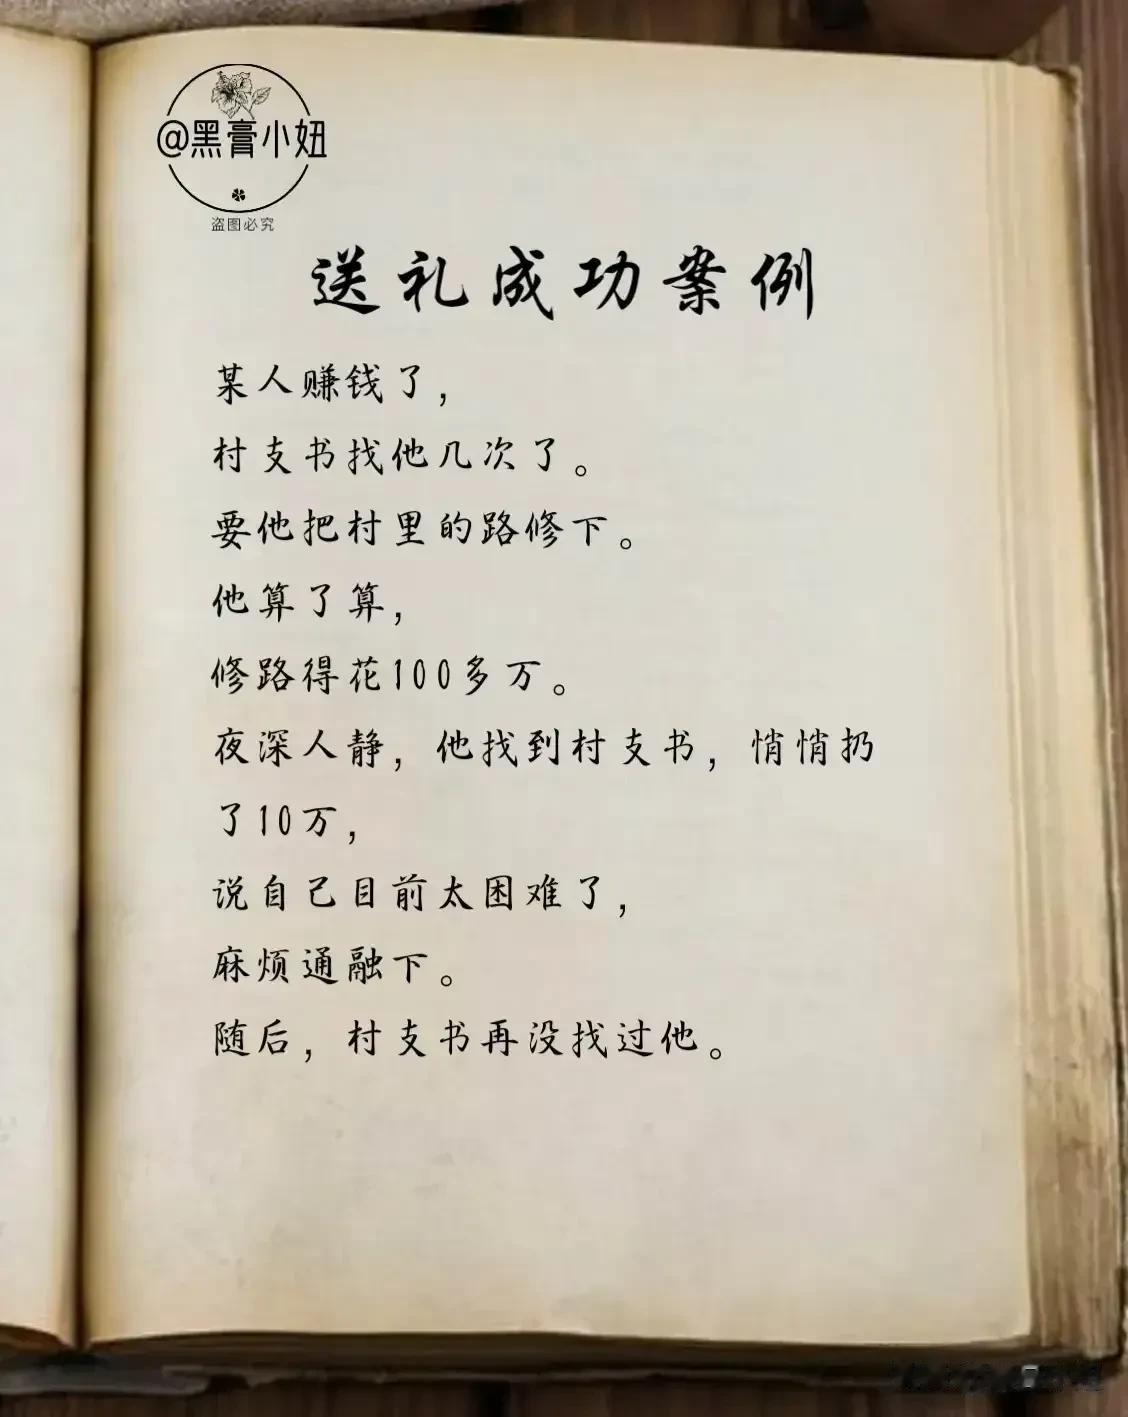 @黑膏小妞
盗图必究
送礼成功案例
某人赚钱了，
村支书找他几次了。
要他把村里的路修下。
他算了算，
修路得花100多万。
夜深人静，他找到村支书，悄悄扔
了10万，
说自己目前太困难了，
麻烦通融下。
随后，村支书再没找过他。